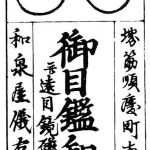 堺筋順慶町
御目鑑
遠目鏡
和泉屋儀右